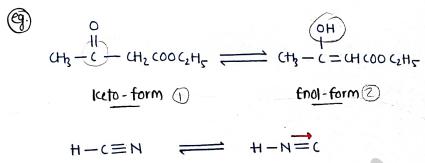 eg.
O
||
CH₃ – C – CH₂COOC₂H₅ ⇌ CH₃ – C = CHCOOC₂H₅
OH
|
keto-form ① Enol-form ②
H – C ≡ N ⇌ H – N ≡ C